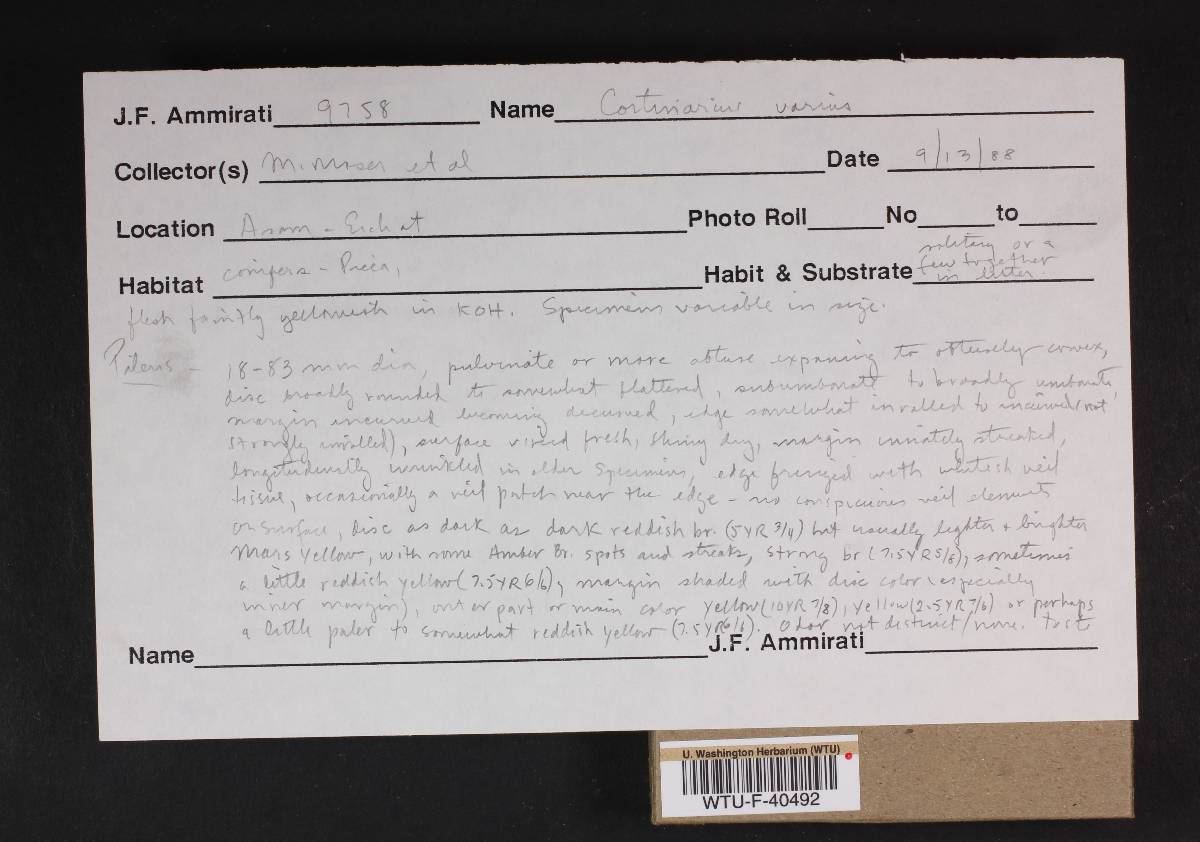 J.F. Ammirati 9758 Name Cortinarius varius
Collector(s) M. Moser et al Date 9/13/88
Location Asam - Eichat Photo Roll No to
Habitat conifers - Picea, Habit & Substrate solitary or a
few together
in litter
flesh faintly yellowish in KOH. Specimens variable in size.
Pileus - 18-83 mm dia, pulvinate or more obtuse expanding to obtusely convex,
disc broadly rounded to somewhat flattened, subumbonate to broadly umbonate
margin incurved becoming decurved, edge somewhat inrolled to incurved (not
strongly inrolled), surface viscid fresh, shiny dry, margin innately streaked,
longitudinally wrinkled in older specimens, edge fringed with whitish veil
tissue, occasionally a veil patch near the edge - no conspicuous veil elements
on surface, disc as dark as dark reddish br. (5YR 3/4) but usually lighter + brighter
Mars Yellow, with some Amber Br. spots and streaks, strong br (7.5YR5/8), sometimes
a little reddish yellow (7.5YR6/6), margin shaded with disc color (especially
inner margin), outer part or main color yellow (10YR 7/8), yellow (2.5YR7/6) or perhaps
a little paler to somewhat reddish yellow (7.5YR6/6). Odor not distinct/none. taste
Name J.F. Ammirati
U. Washington Herbarium (WTU)
WTU-F-40492